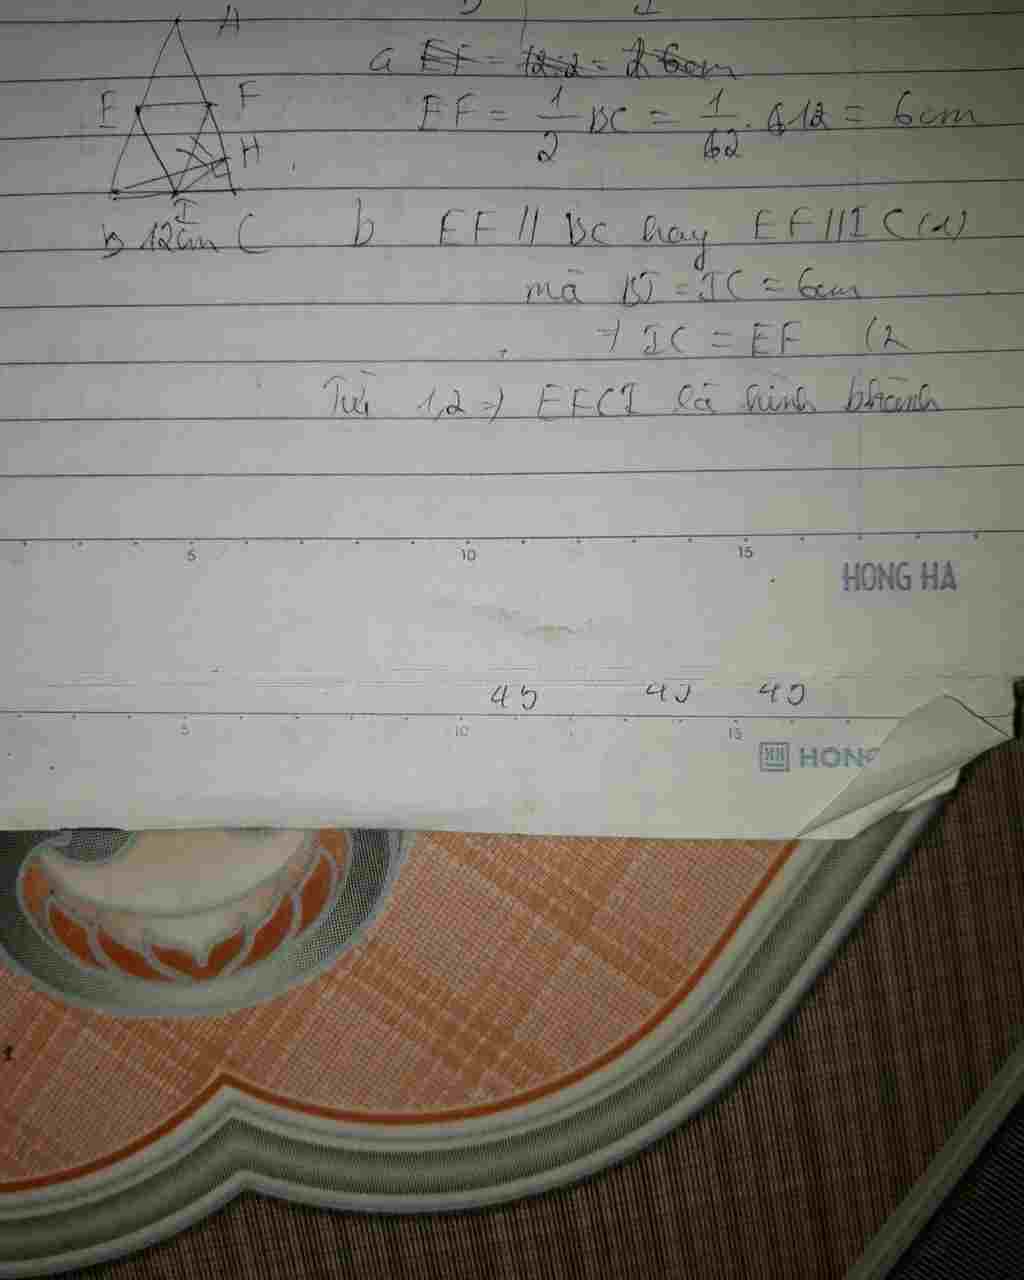 A
a EF = 12:2 = 6cm
E F
EF = 1/2 BC = 1/2 . 12 = 6cm
H
I
B 12cm C
b EF // BC hay EF // IC (1)
mà BI = IC = 6cm
→ IC = EF (2
Từ 1,2 → EFCI là hình bhành
5 10 15
HONG HA
45 45 45
5 10 15
HH HONG